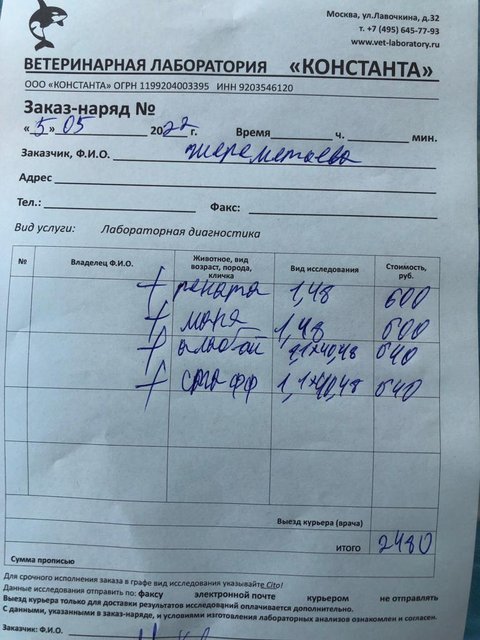 Москва, ул.Лавочкина, д.32
т. +7 (495) 645-77-93
www.vet-laboratory.ru
ВЕТЕРИНАРНАЯ ЛАБОРАТОРИЯ «КОНСТАНТА»
ООО «КОНСТАНТА» ОГРН 1199204003395 ИНН 9203546120
Заказ-наряд №
«5» 05 2022 г. Время ч. мин.
Заказчик, Ф.И.О. Шереметьева
Адрес
Тел.: Факс:
Вид услуги: Лабораторная диагностика
№ Владелец Ф.И.О. Животное, вид возраст, порода, кличка Вид исследования Стоимость, руб.
+ рената 1,48 600
+ 1,48 600
+ алабай 640
+ стафф 640
Выезд курьера (врача)
ИТОГО 2480
Сумма прописью
Для срочного исполнения заказа в графе вид исследования указывайте Cito!
Данные исследования отправить по: факсу электронной почте курьером не отправлять
Выезд курьера только для доставки результатов исследований оплачивается дополнительно.
С данными, указанными в заказ-наряде, и условиями изготовления лабораторных анализов ознакомлен и согласен.
Заказчик: Ф.И.О.